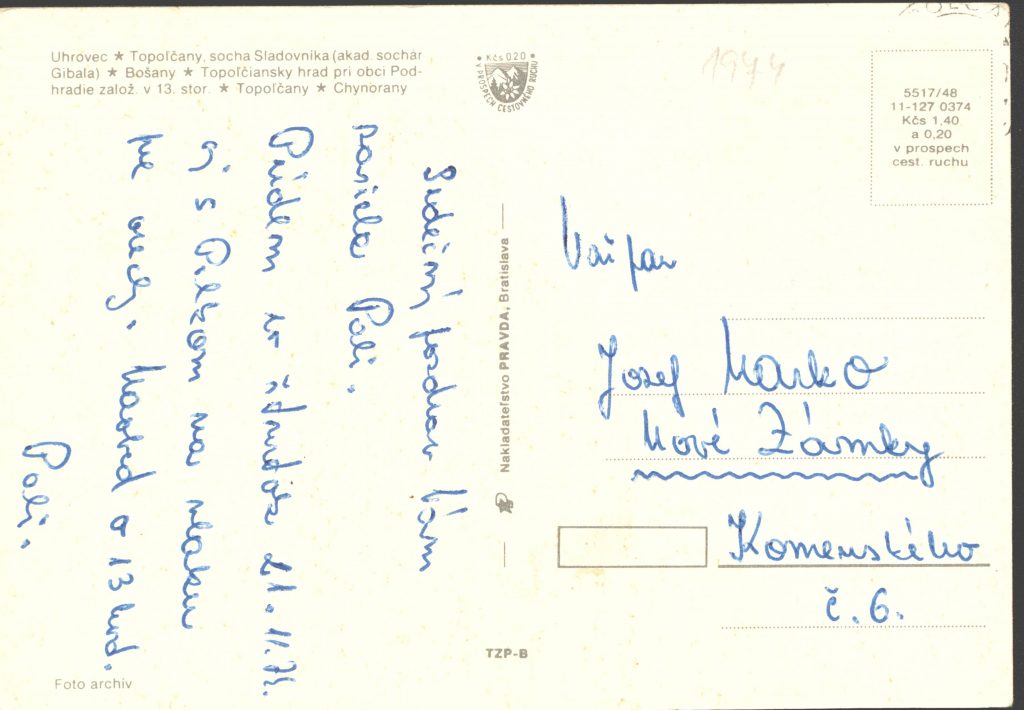 Uhrovec ★ Topoľčany, socha Sladovníka (akad. sochár
Gibala) ★ Bošany ★ Topoľčiansky hrad pri obci Pod-
hradie založ. v 13. stor. ★ Topoľčany ★ Chynorany
Kčs 0,20
V PROSPECH CESTOVNÉHO RUCHU
1974
5517/48
11-127 0374
Kčs 1,40
a 0,20
v prospech
cest. ruchu
Srdečný pozdrav Vám
zasiela Pali.
Prídem v štvrtok 21.11.74.
aj s na vlaku
Naobed o 13 hod.
Pali.
Nakladateľstvo PRAVDA, Bratislava
pan
Josef Marko
Nové Zámky
Komenského
č. 6.
TZP-B
Foto archív